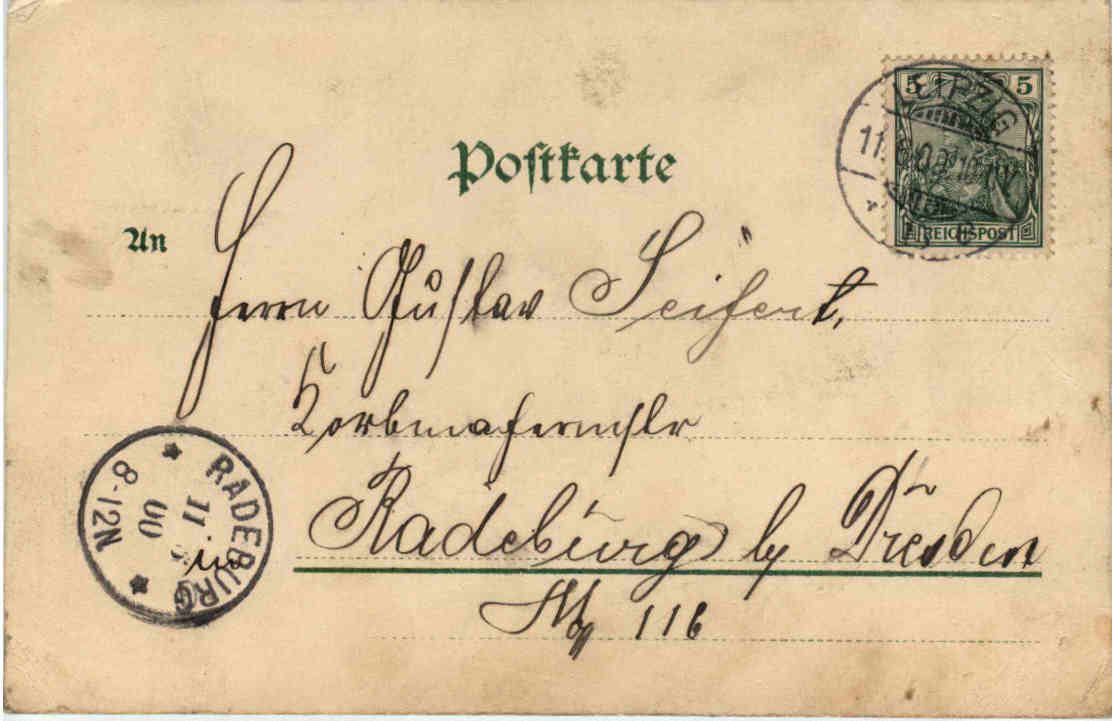 Postkarte
5 5
LEIPZIG
REICHSPOST
An
Herrn Gustav Seifert,
Korbmachermstr
Radeburg b/ Dresden
116
RADEBURG
11
00
8-12N